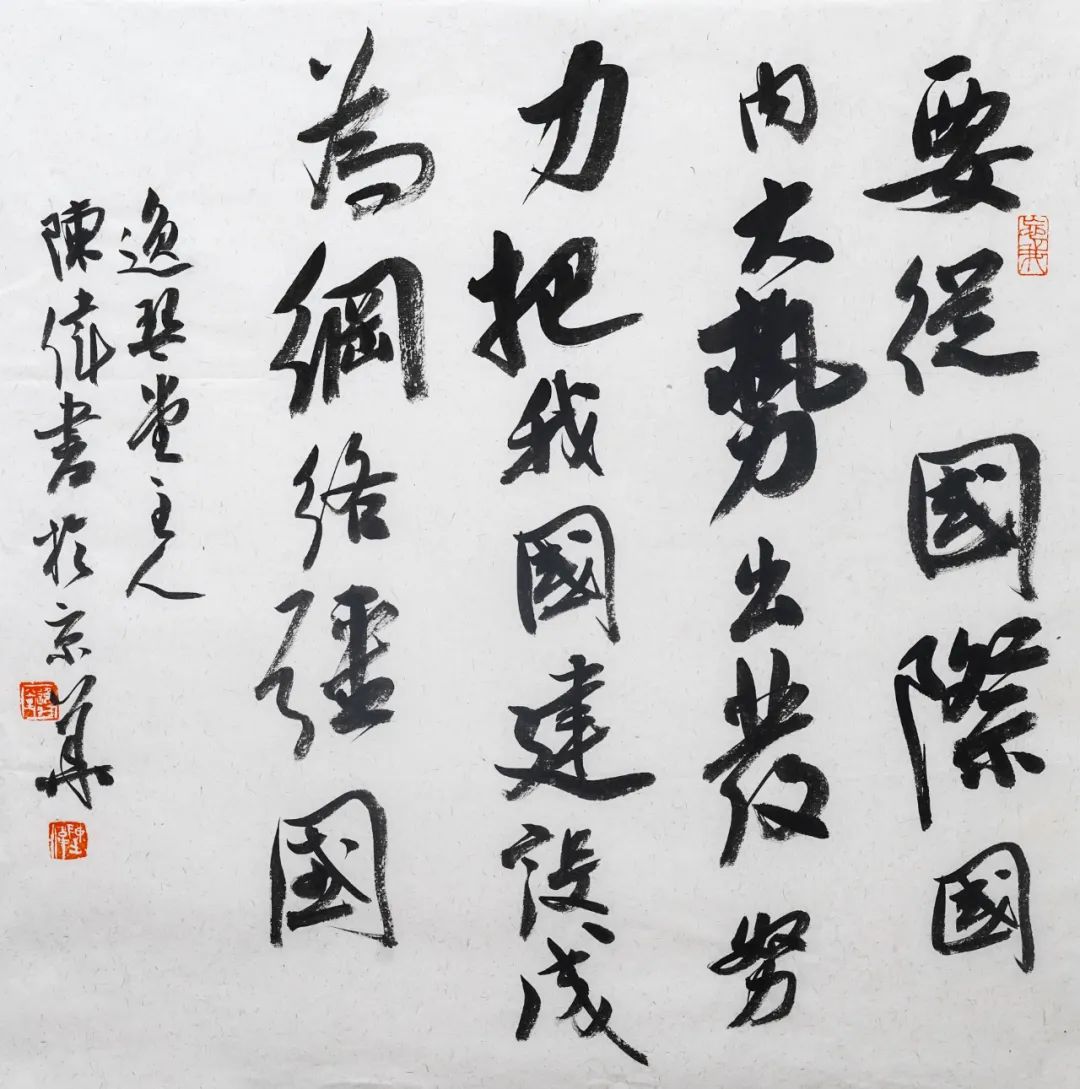 要從國際國
内大勢出發努
力把我國建設成
為網絡彊國
逸琴堂主人
陳偉書於京華
陳偉